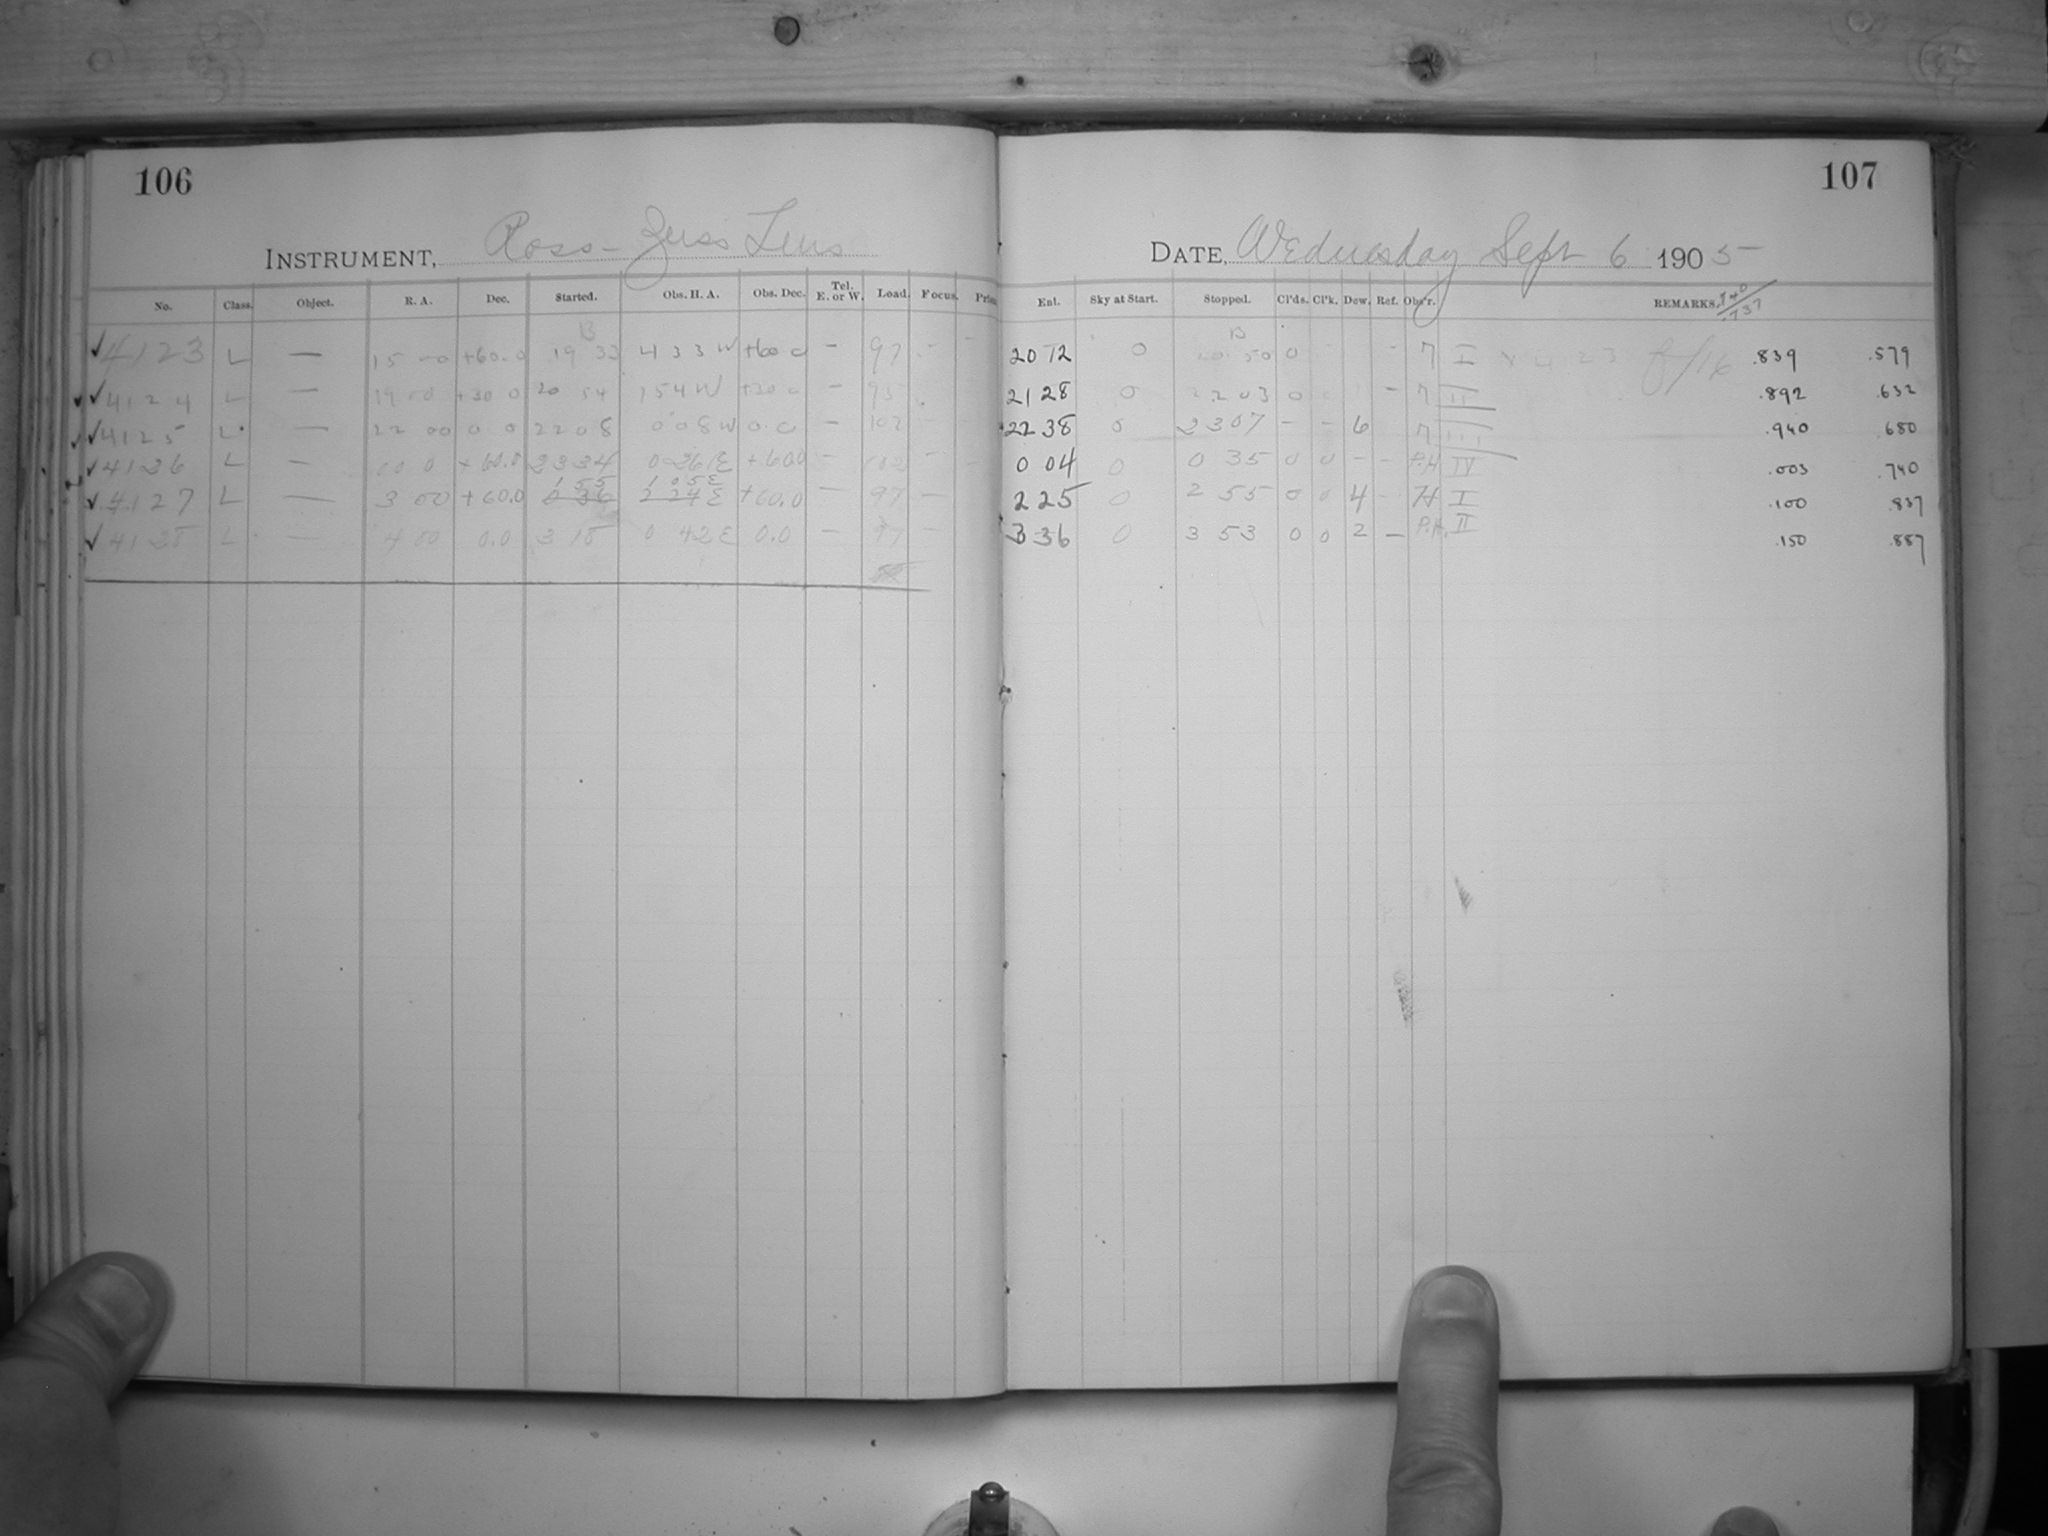 106
107
INSTRUMENT, Ross-Zeiss Lens
DATE, Wednesday Sept 6 1905
No. Class. Object. R. A. Dec. Started. Obs. H. A. Obs. Dec. Tel. E. or W. Load. Focus. Ent. Sky at Start. Stopped. Cl'ds. Cl'k. Dew. Ref. Obs'r. REMARKS. .740 / .737
B B
✓4123 L — 15 00 +60.0 19 33 4 33 W +60 0 – 97 – 20 12 0 20 50 0 – I f/16 .839 .579
✓4124 L — 19 00 +30 0 20 54 1 54 W +30 0 – 95 21 28 0 22 03 0 – II .892 .632
✓4125 L — 22 00 0.0 22 08 0 08 W 0.0 – 102 22 38 0 23 07 – – 6 III .940 .680
✓4126 L — 00 0 +60.0 23 34 0 26 E +60.0 – 0 04 0 0 35 0 0 – – P.H IV .003 .740
1 55 1 05 E
✓4127 L — 3 00 +60.0 0 36 2 24 E +60.0 — 97 – 2 25 0 2 55 0 0 4 – H I .100 .837
✓4128 L — 4 00 0.0 3 18 0 42 E 0.0 – 97 – 3 36 0 3 53 0 0 2 – P.H. II .150 .887